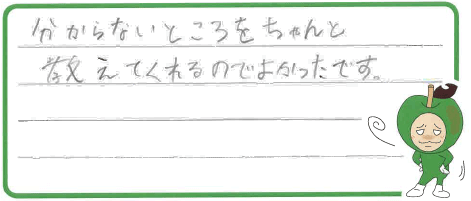 分からないところをちゃんと
教えてくれるのでよかったです。